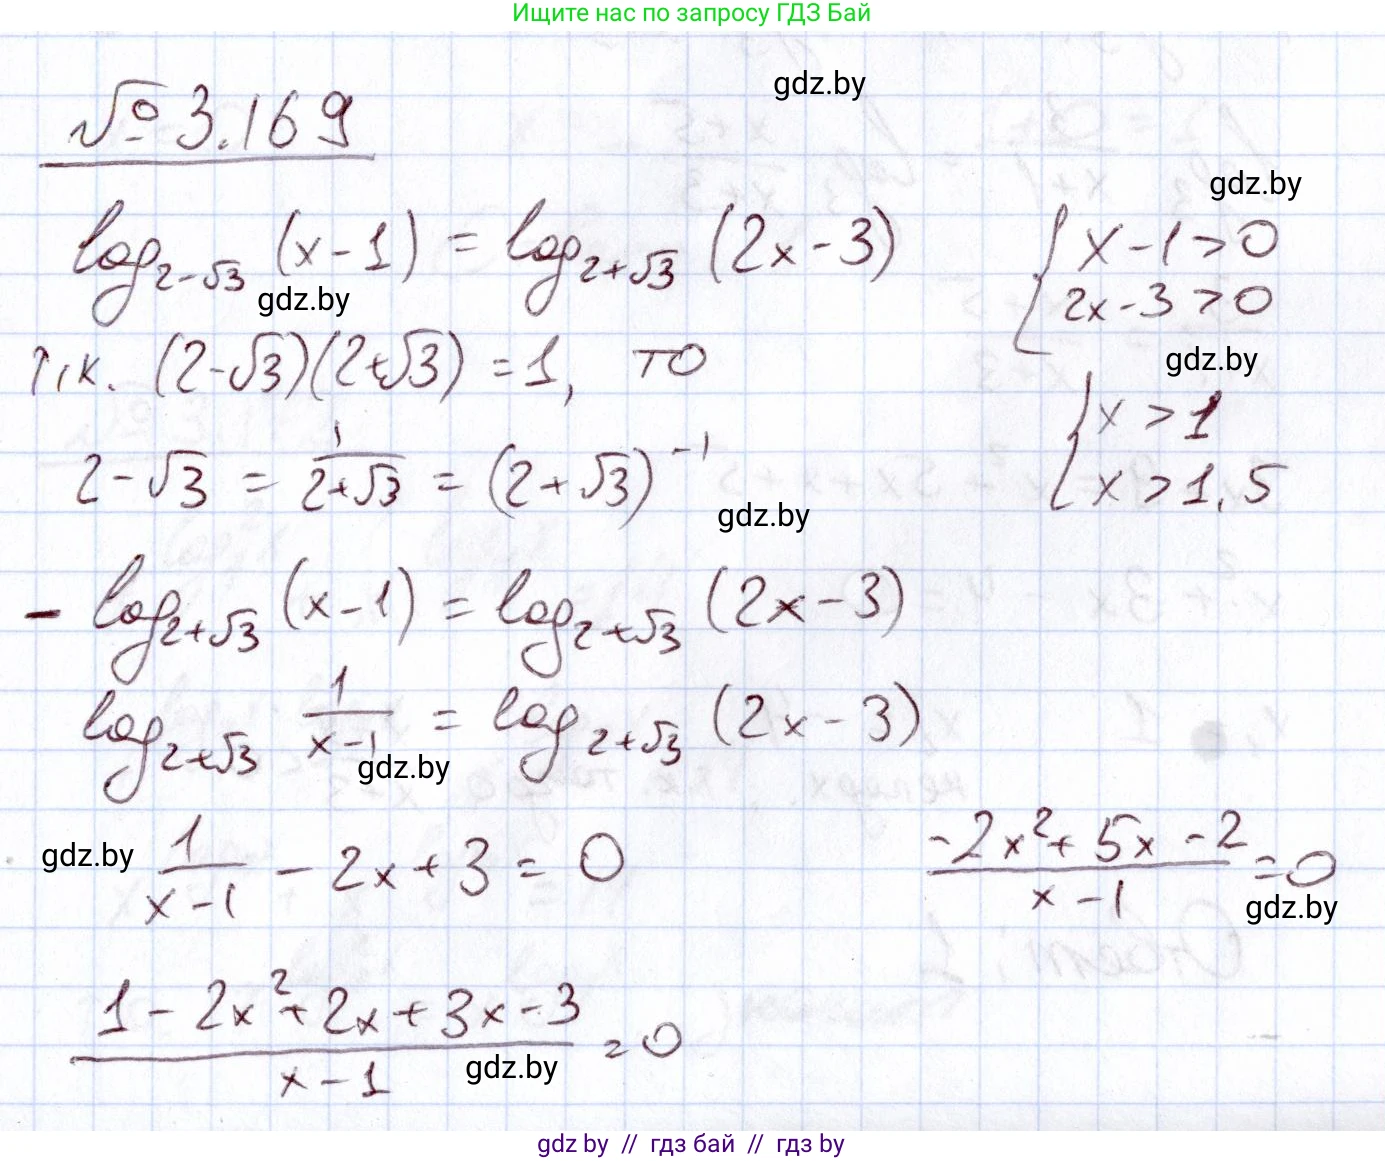 Ищите нас по запросу ГДЗ Бай
gdz.by
№ 3.169
gdz.by
log_{2-√3} (x-1) = log_{2+√3} (2x-3)
{ x-1>0
2x-3>0
gdz.by
Т.к. (2-√3)(2+√3) = 1, то
gdz.by
{ x > 1
x > 1,5
2-√3 = 1/(2+√3) = (2+√3)^{-1}
gdz.by
- log_{2+√3} (x-1) = log_{2+√3} (2x-3)
log_{2+√3} 1/(x-1) = log_{2+√3} (2x-3)
gdz.by
gdz.by
1/(x-1) - 2x+3 = 0
(-2x²+5x-2)/(x-1) = 0
gdz.by
(1-2x²+2x+3x-3)/(x-1) = 0
gdz.by
gdz by // гдз бай // гдз by